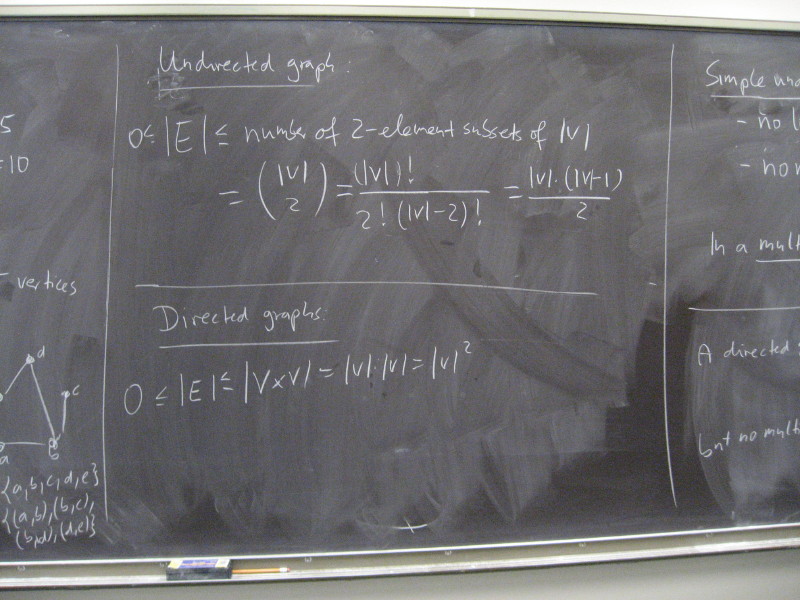 5
=10
vertices
d
c
a
{a,b,c,d,e}
{(a,b),(b,c),
(b,d),(d,e)}
Undirected graph:
0 ≤ |E| ≤ number of 2-element subsets of |V|
= (|V| 2) = (|V|)! / 2!(|V|-2)! = |V|·(|V|-1) / 2
Directed graphs:
0 ≤ |E| ≤ |V×V| = |V|·|V| = |V|²
Simple und
- no l
- no
In a mult
A directed
but no multi